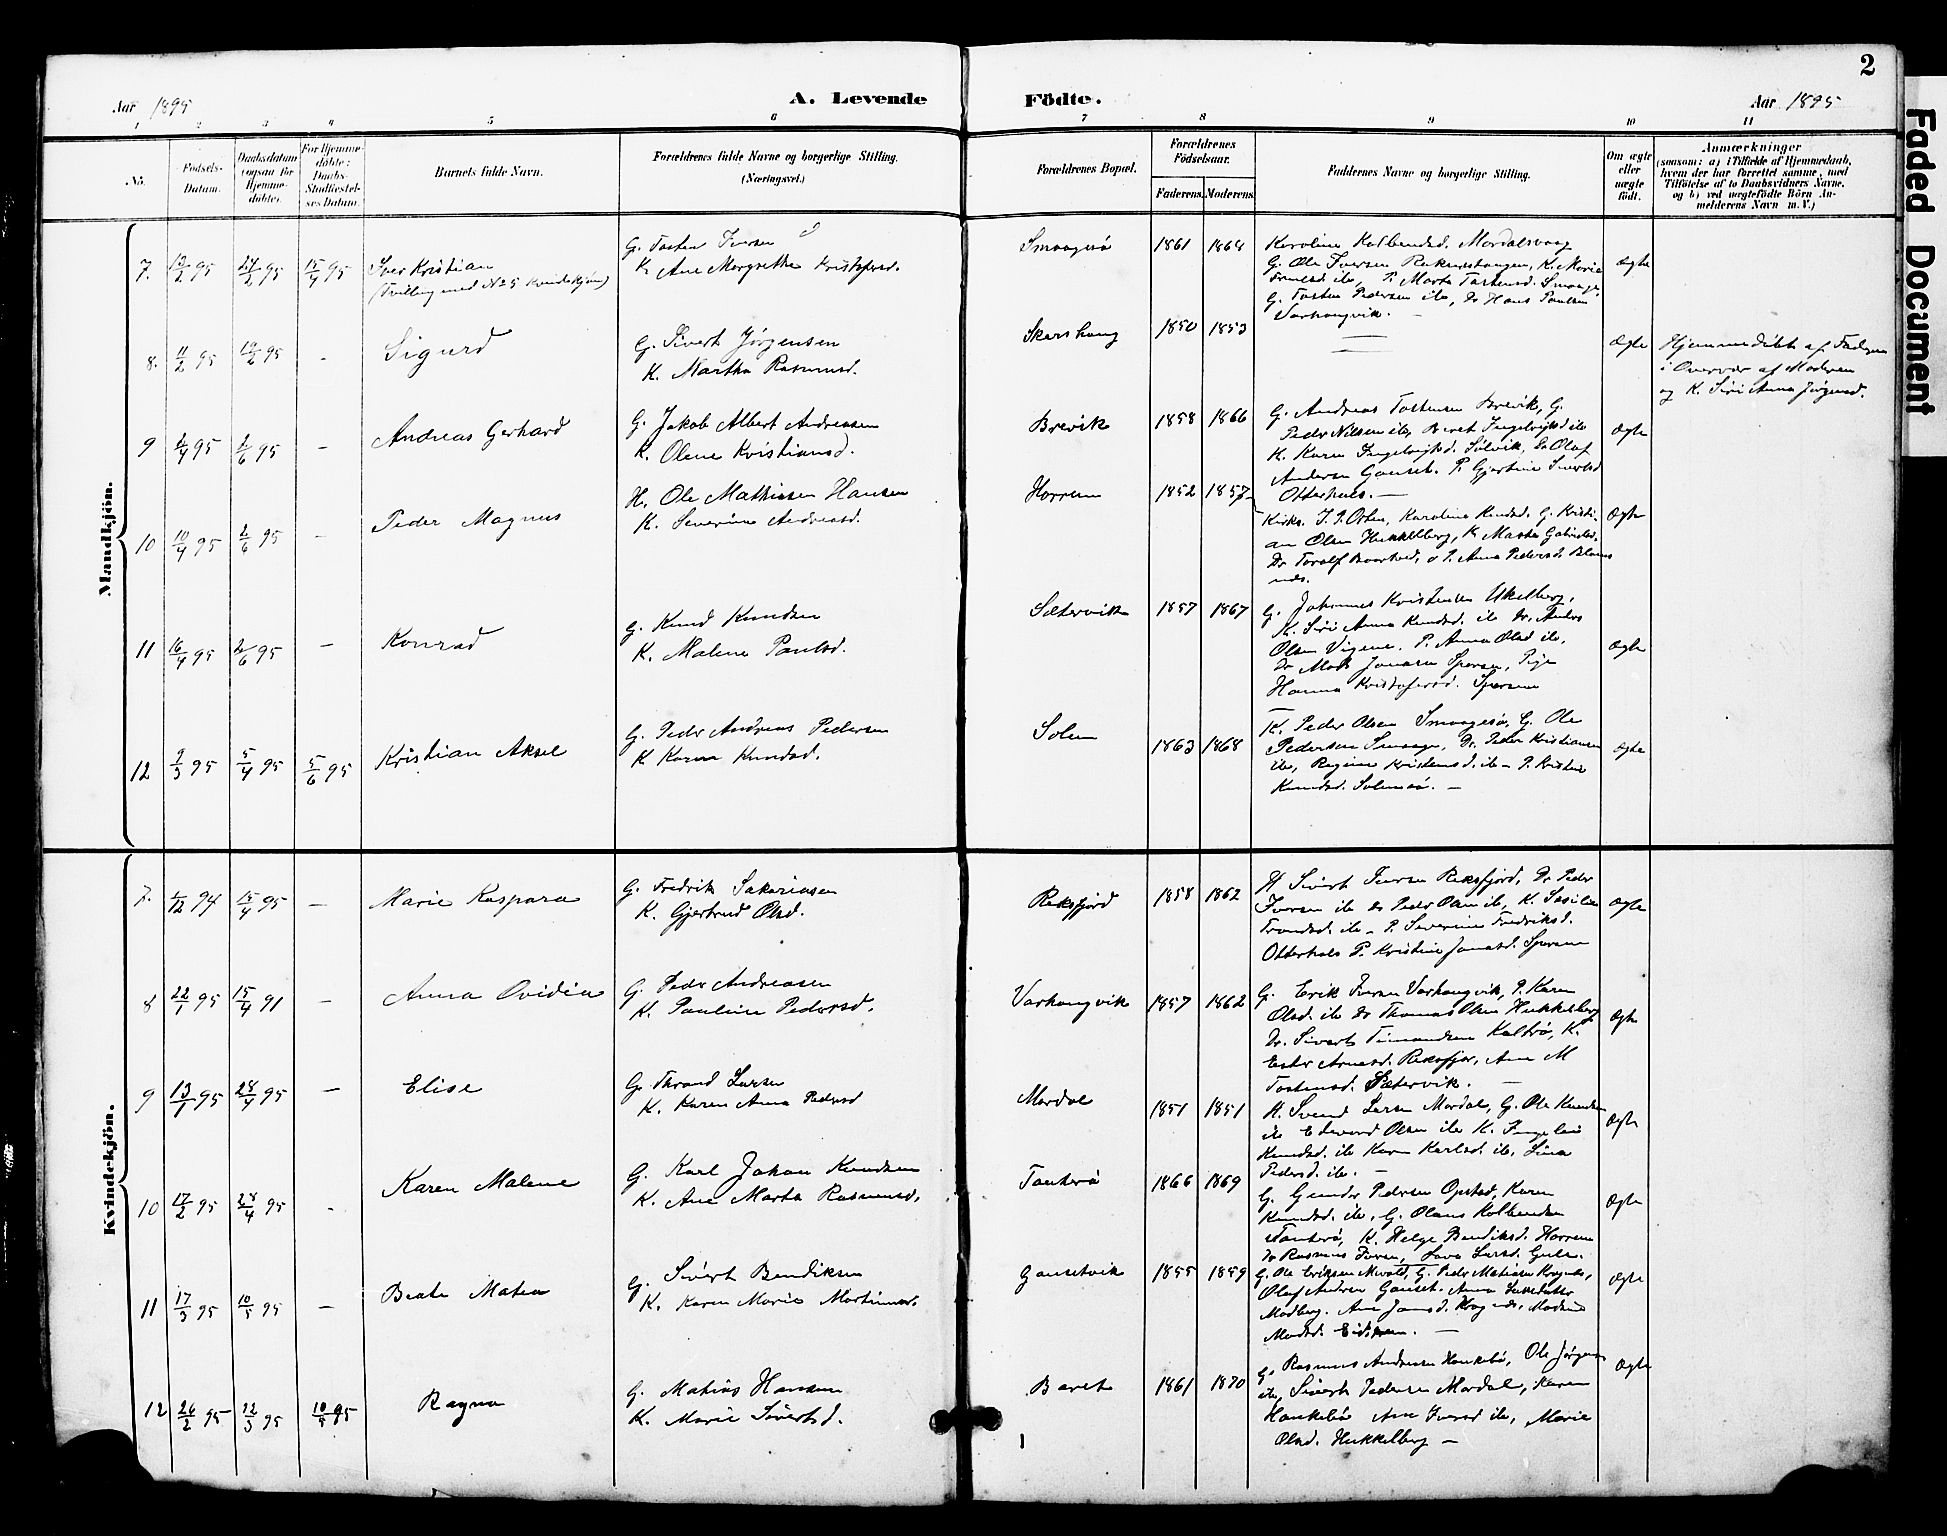 2
Aar 1895
A. Levende Födte.
Aar 1895
1 2 3 4 5 6 7 8 9 10 11
No.
Födsels-Datum.
Daabsdatum (ogsaa for Hjemme-döbte).
For Hjemme-döbte: Daabs-Stadfæstel-ses Datum.
Barnets fulde Navn.
Forældrenes fulde Navne og borgerlige Stilling.
(Næringsvei.)
Forældrenes Bopæl.
Forældrenes Födselsaar.
Faderens. Moderens.
Faddernes Navne og borgerlige Stilling.
Om ægte eller uægte födt.
Anmærkninger
(saasom: a) i Tilfælde af Hjemmedaab,
hvem der har forrettet samme, med
Tilföielse af to Daabsvidners Navne,
og b) ved uægtefödte Börn An-
melderens Navn m. V.)
Mandkjön.
7. 12/2 95 24/2 95 15/4 95 Iver Kristian
(Tvilling med No 5 Kvindekjøn)
G. Tosten Iversen
K. Ane Margrethe Kristofersd.
Smaagesø 1861 1864
Karoline Kolbensd. Mordalsvaag
G. Ole Iversen K. Marie
ile, P. Marta Tostensd. Smaage
G. Tosten Pedersen ile, Dr Hans Paulsen
Varhaugvik.
Ægte
8. 11/2 95 19/2 95 - Sigurd
G. Sivert Jørgensen
K. Martha Rasmusd.
Skarshaug 1850 1853
Ægte
Hjemmedöbt af Faderen
i Overvær af Moderen
og K. Siri Anna Jørgensd.
9 4/4 95 2/6 95 - Andreas Gerhard
G. Jakob Albert Andreasen
K. Olene Kristiansd.
Brevik 1858 1866
G. Andreas Tostensen Brevik, G.
Peder Nilsen ile, Beret Ingebrigtsd ile
K. Karen Ingebrigtsd. Sølvik, Dr Olaf
Andersen Gauset. P. Gjertine Sivertsd
Otterhals. -
Ægte
10 10/4 95 2/6 95 - Peder Magnus
H. Ole Mathisen Hansen
K. Severine Andreasd.
Horrem 1852 1857
Kirks. J. P. Osten, Karoline Knudsd. G. Kristi-
an Olsen Hukkelberg, K Marta Gabrielsd.
Dr Toralf P. Anna Pedersd.
Ægte
11 16/4 95 2/6 95 - Konrad
G. Knud Knudsen
K. Malene Paulsd.
Sætervik 1857 1867
G. Johannes Kristensen Ukelberg,
K. Siri Anna Knudsd. ile Dr. Anders
Olsen Vigene. P. Anna Olsd ile,
Dr Mads Jonasen Sporsem, Pige
Hanna Kristofersd. Sporsem
Ægte
12 9/3 95 5/4 95 5/6 95 Kristian Aksel
G. Peder Andreas Pedersen
K Karen Knudsd.
Solem 1863 1868
K. Peder Olsen Smaagesø, G. Ole
Pedersen Smaage, Dr. Peder Kristiansen
ile, Regine Kristensd. ile - P. Kristine
Knudsd. Solemsø. -
Ægte
Kvindekjön.
7. 1/12 94 15/4 95 - Marie Kaspara
G. Fredrik Sakariasen
K. Gjertrud Olsd.
Reksfjord 1858 1862
H Sivert Iversen Reksfjord, Dr Peder
Iversen ile Dr Peder Olsen ile, K. Sesilie
Trondsd. ile - P. Severine Fredriksd.
Otterhals P. Kristine Jonasd. Sporsem
Ægte
8 22/1 95 15/4 91 - Anna Ovidia
G. Peder Andreasen
K. Pauline Pedersd.
Varhaugvik 1857 1862
G. Erik Iversen Varhaugvik, P. Karen
Olsd. ile Dr Thomas Olsen Hukkelberg
Dr. Sivert Timandsen K.
Ester Arnesd. Reksfjor, Ane M
Tostensd. Sætervik. -
Ægte
9 13/1 95 28/4 95 - Elise
G. Thrond Larsen
K. Karen Anna Pedersd
Mordal 1851 1851
H. Svend Larsen Mordal, G. Ole Knudsen
ile Edevard Olsen ile K. Ingeleiv
Knudsd. ile Karen Karlsd. ile, Lina
Pedersd. ile. -
Ægte
10 17/2 95 28/4 95 - Karen Malene
G. Karl Johan Knudsen
K. Ane Marta Rasmusd.
Tanterø 1866 1869
G. Gunder Pedersen Opstad, Karen
Knudsd. ile, G. Olaus Kolbensen
Tanterø, K. Helge Bendiksd. Horrem
Dr Rasmus Iversen, Larsd.
Ægte
11 17/3 95 10/5 95 - Beate Matea
G. Sivert Bendiksen
K. Karen Marie Martinusd.
Gausetvik 1855 1859
G. Ole Eriksen G. Peder Matiasen
Olaf Andersen Gauset. Anna
Ane Jonsd.
Madsd. -
Ægte
12 26/2 95 22/3 95 10/5 95 Ragna
G. Matias Hansen
K. Marie Sivertsd.
Barset 1861 1870
G. Rasmus Andreasen Haukebø, Ole Jørgensen
ile, Sivert Pedersen Mordal, Karen
Haukebø Ane Iversd ile, Marie
Olsd. Hukkelberg -
Ægte
Faded Document